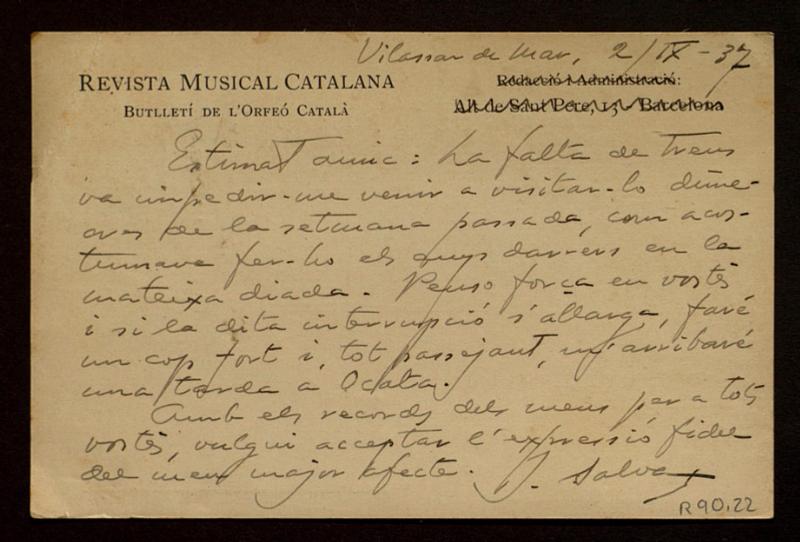 Vilassar de Mar, 2/IX-37
REVISTA MUSICAL CATALANA
BUTLLETÍ DE L'ORFEÓ CATALÀ
Redacció i Administració:
Alt de Sant Pere, 13 - Barcelona
Estimat amic: La falta de trens
va impedir-me venir a visitar-lo dime-
cres de la setmana passada, com acos-
tumava fer-ho els anys darrers en la
mateixa diada. Penso força en vostès
i si la dita interrupció s'allarga, faré
un cop fort i, tot passejant, m'arribaré
una tarda a Ocata.
Amb els records dels meus per a tots
vostès, vulgui acceptar l'expressió fidel
del meu major afecte. J. Salvat
R 90.22